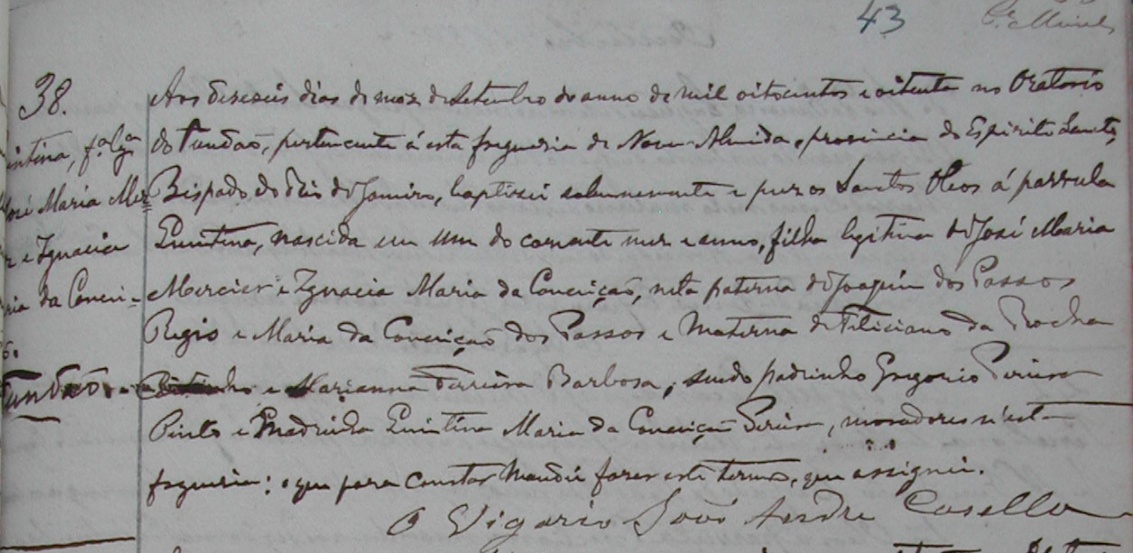 43
38.
Aos deseseis dias do mez de Setembro do anno de mil oitocentos e oitenta no Oratorio
intina, fª lgª
do Fundão, pertencente á esta freguesia de Nova-Almeida, provincia do Espirito Santo,
José Maria Mer=
Bispado do Rio de Janeiro, baptisei solemnemente e puz os Santos Oleos á parvula
r e Ignacia
Quintina, nascida em um do corrente mez e anno, filha legitima de José Maria
ria da Concei-
Mercier e Ignacia Maria da Conceição, neta paterna de Joaquim dos Passos
Regio e Maria da Conceição dos Passos e Materna de Feliciano da Rocha
Fundão.
e Marianna Pereira Barbosa, sendo padrinho Gregorio Pereira
Pinto e Madrinha Quintina Maria da Conceição Pereira, moradores n'esta
freguesia: o que para constar mandei fazer este termo, que assignei.
O Vigario João Andre Casella